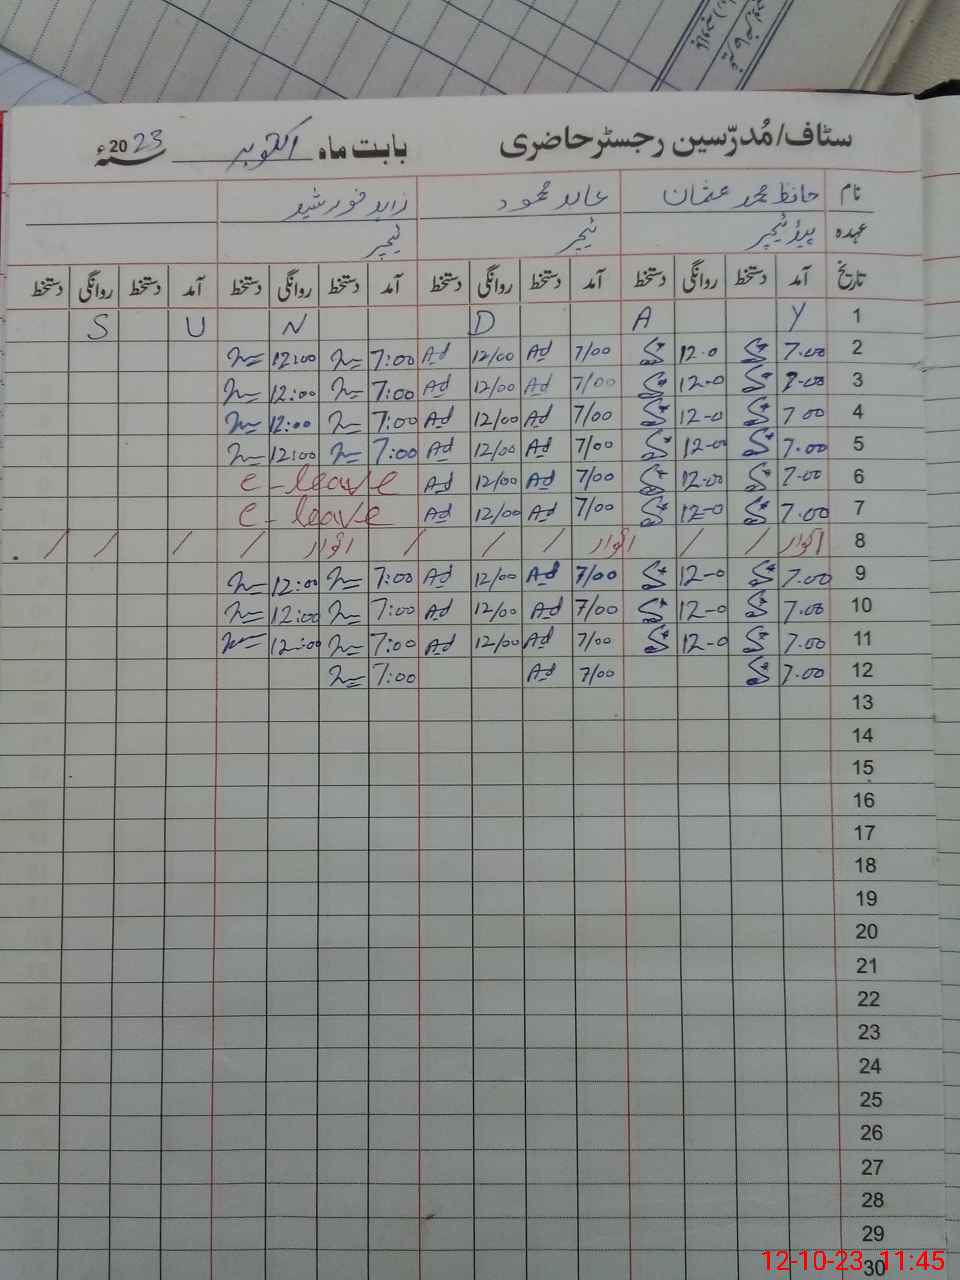 سٹاف/مُدرّسین رجسٹر حاضری بابت ماہ اکتوبر 2023ء
نام حافظ محمد عثمان عابد محمود زاہد خورشید
عہدہ ہیڈ ٹیچر ٹیچر ٹیچر
تاریخ آمد دستخط روانگی دستخط آمد دستخط روانگی دستخط آمد دستخط روانگی دستخط آمد دستخط روانگی دستخط
1 Y A D N U S
2 7.00 12.0 7/00 Ad 12/00 Ad 7:00 12:00
3 7.00 12-0 7/00 Ad 12/00 Ad 7:00 12:00
4 7 00 12-0 7/00 Ad 12/00 Ad 7:00 12:00
5 7.00 12-00 7/00 Ad 12/00 Ad 7:00 12:00
6 7.00 12.00 7/00 Ad 12/00 Ad c-leave
7 7.00 12-0 7/00 Ad 12/00 Ad c-leave
8 اتوار / / اتوار / / / اتوار / / / /
9 7.00 12-0 7/00 Ad 12/00 Ad 7:00 12:00
10 7.00 12-0 7/00 Ad 12/00 Ad 7:00 12:00
11 7.00 12-0 7/00 Ad 12/00 Ad 7:00 12:00
12 7.00 7/00 Ad 7:00
13
14
15
16
17
18
19
20
21
22
23
24
25
26
27
28
29
30
12-10-23 11:45